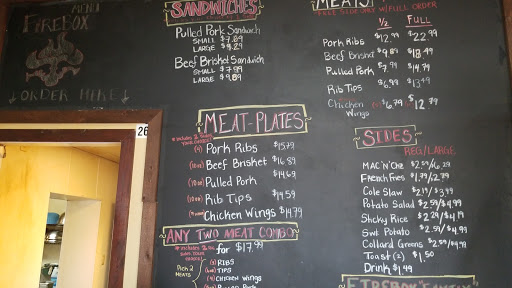 MENU
FIREBOX
↓ORDER HERE↓
26
SANDWICHES
Pulled Pork Sandwich
SMALL $7.64
LARGE $9.29
Beef Brisket Sandwich
SMALL $7.99
LARGE $9.89
MEAT-PLATES
Pork Ribs $15.79
Beef Brisket $16.89
Pulled Pork $14.69
Rib Tips $14.59
Chicken Wings $14.79
ANY TWO MEAT COMBO
for $17.99
PICK 2
MEATS
RIBS
TIPS
CHICKEN WINGS
MEATS
FREE SIDE ONLY W/FULL ORDER
½ FULL
Pork Ribs $12.99 $22.99
Beef Brisket $9.89 $18.49
Pulled Pork $7.99 $14.79
Rib Tips $6.99 $13.49
Chicken Wings $6.79 $12.79
SIDES
REG/LARGE
MAC'N'CHZ $2.59/$6.29
French Fries $1.79/2.79
Cole Slaw $2.19/$3.99
Potato Salad $2.59/$4.99
Sticky Rice $2.29/$4.19
Swt Potato $2.59/$4.99
Collard Greens $2.59/$4.99
Toast (2) $1.50
Drink $1.49